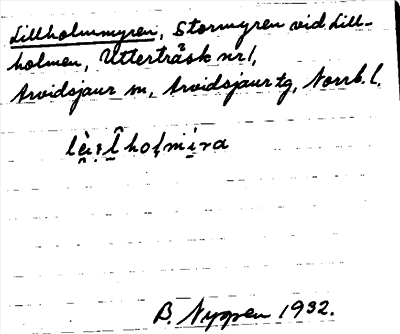 Lillholmmyren, Stormyren vid Lill-
holmen, Utterträsk nr 1,
Arvidsjaur sn, Arvidsjaur tg, Norrb. l.
B. Nygren 1932.